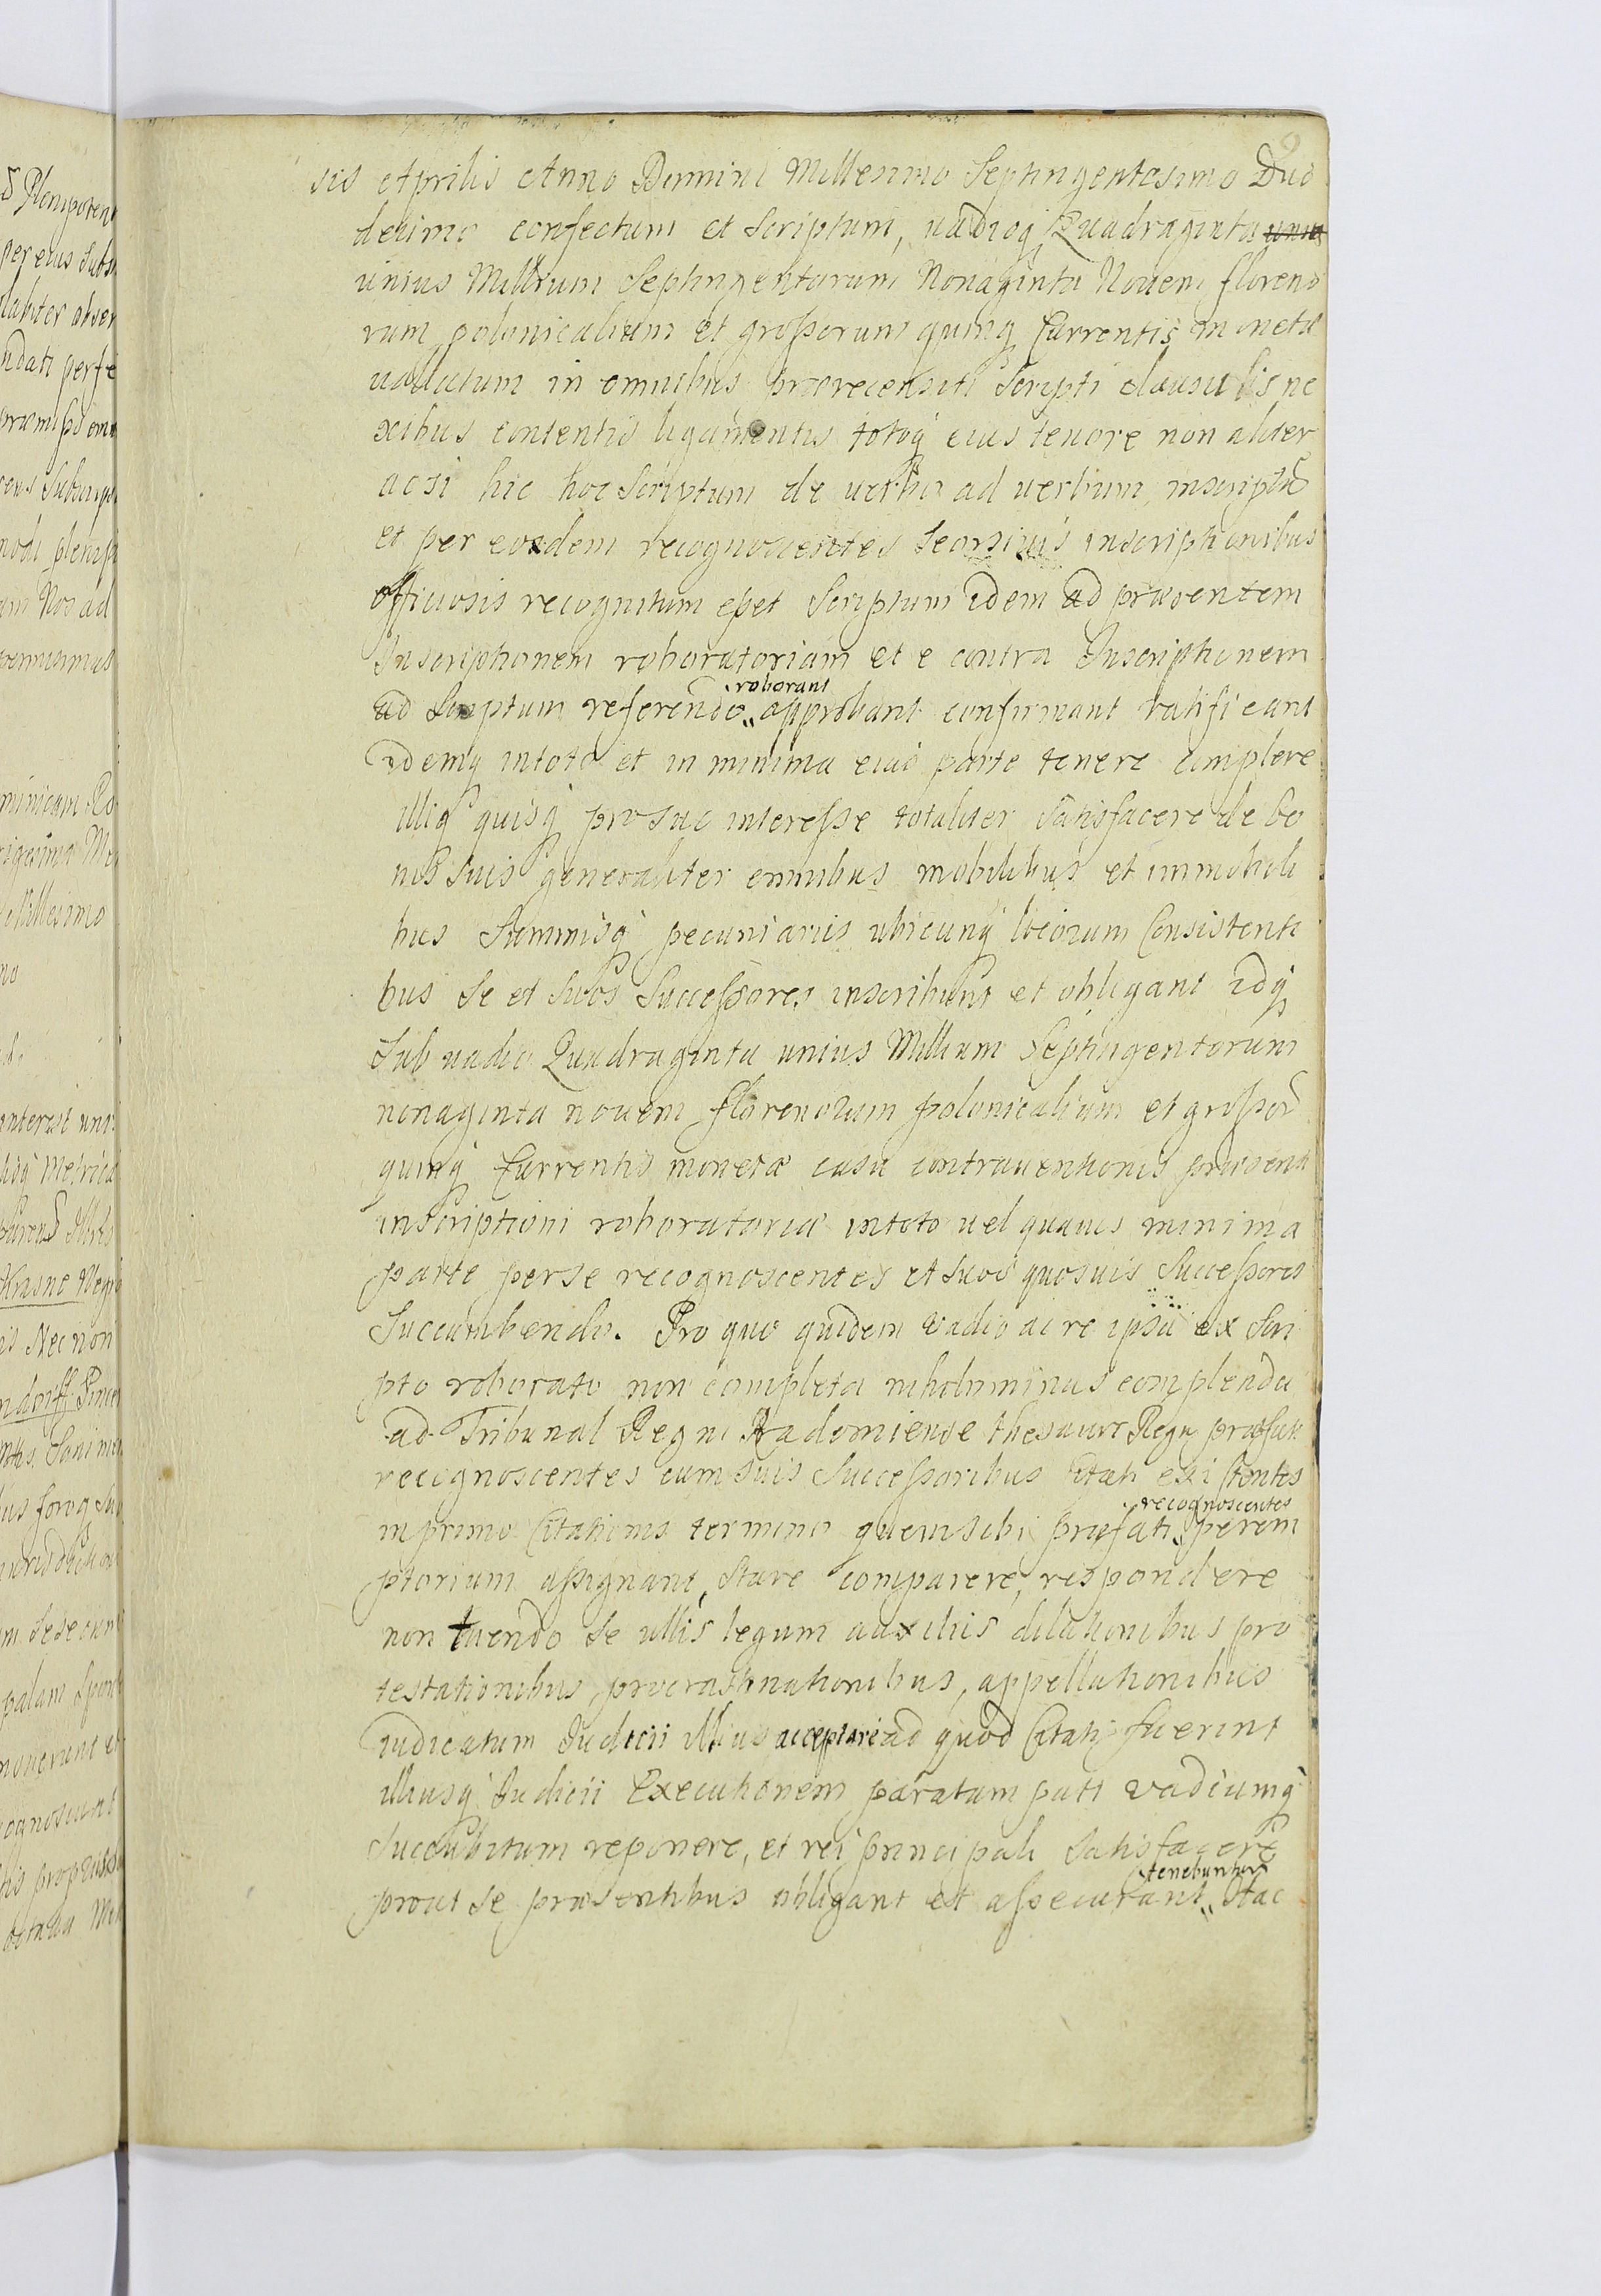 sis Aprilis Anno Domini Millesimo Septingentesimo Duo
decimo confectum et scriptum, uadioq Quadraginta unius
unius Millium Septingentorum Nonaginta Nouem floreno
rum polonicalium et grossorum quinq Currentis monetæ
uallatum in omnibus prærecensiti Scripti clausulis ne
xibus contentis ligamentis totoq eius tenore non aliter
acsi hic hoc Scriptum de uerbo ad uerbum inscriptũ
et per eosdem recognoscentes seorsiuis inscriptionibus
officiosis recognitum esset Scriptum idem ad præsentem
Inscriptionem roboratoriam et e contra Inscriptionem
ad Scriptum referendo roborant approbant confirmant ratificant
idemq in toto et in minima eius parte tenere complere
illiq quisq pro suo interesse totaliter satisfacere de bo
nis suis generaliter omnibus mobilibus et immobili
bus Summisq pecuniariis ubicunq locorum Consistenti
bus se et suos Successores inscribunt et obligant idq
Sub uadio Quadraginta unius Millium Septingentorum
nonaginta nouem florenorum polonicalium et grossor
quinq Currentis monetæ casu contrauentionis præsenti
inscriptioni roboratoriæ in toto uel quauis minima
parte per se recognoscentes et suos quosuis Successores
Succumbendo. Pro quo quidem vadio ac re ipsa ex Scri
pto roborato non completa nihilominus complenda
ad Tribunal Regni Radomiense thesauri Regni præfati
recognoscentes cum suis Successoribus Citati existentes
in primo Citationis termino quem sibi præfati recognoscentes perem
ptorium assignant, Stare comparere, respondere
non tuendo se ullis legum auxiliis dilationibus pro
testationibus procrastinationibus, appellationibus
iudicatum Iudicii illius acceptare ad quod Citati fuerint
illiusq Iudicii Executionem paratam pati vadiumq
succubitum reponere, et rei principali satisfacere
prout se præsentibus obligant et assecurant tenebuntur Hac